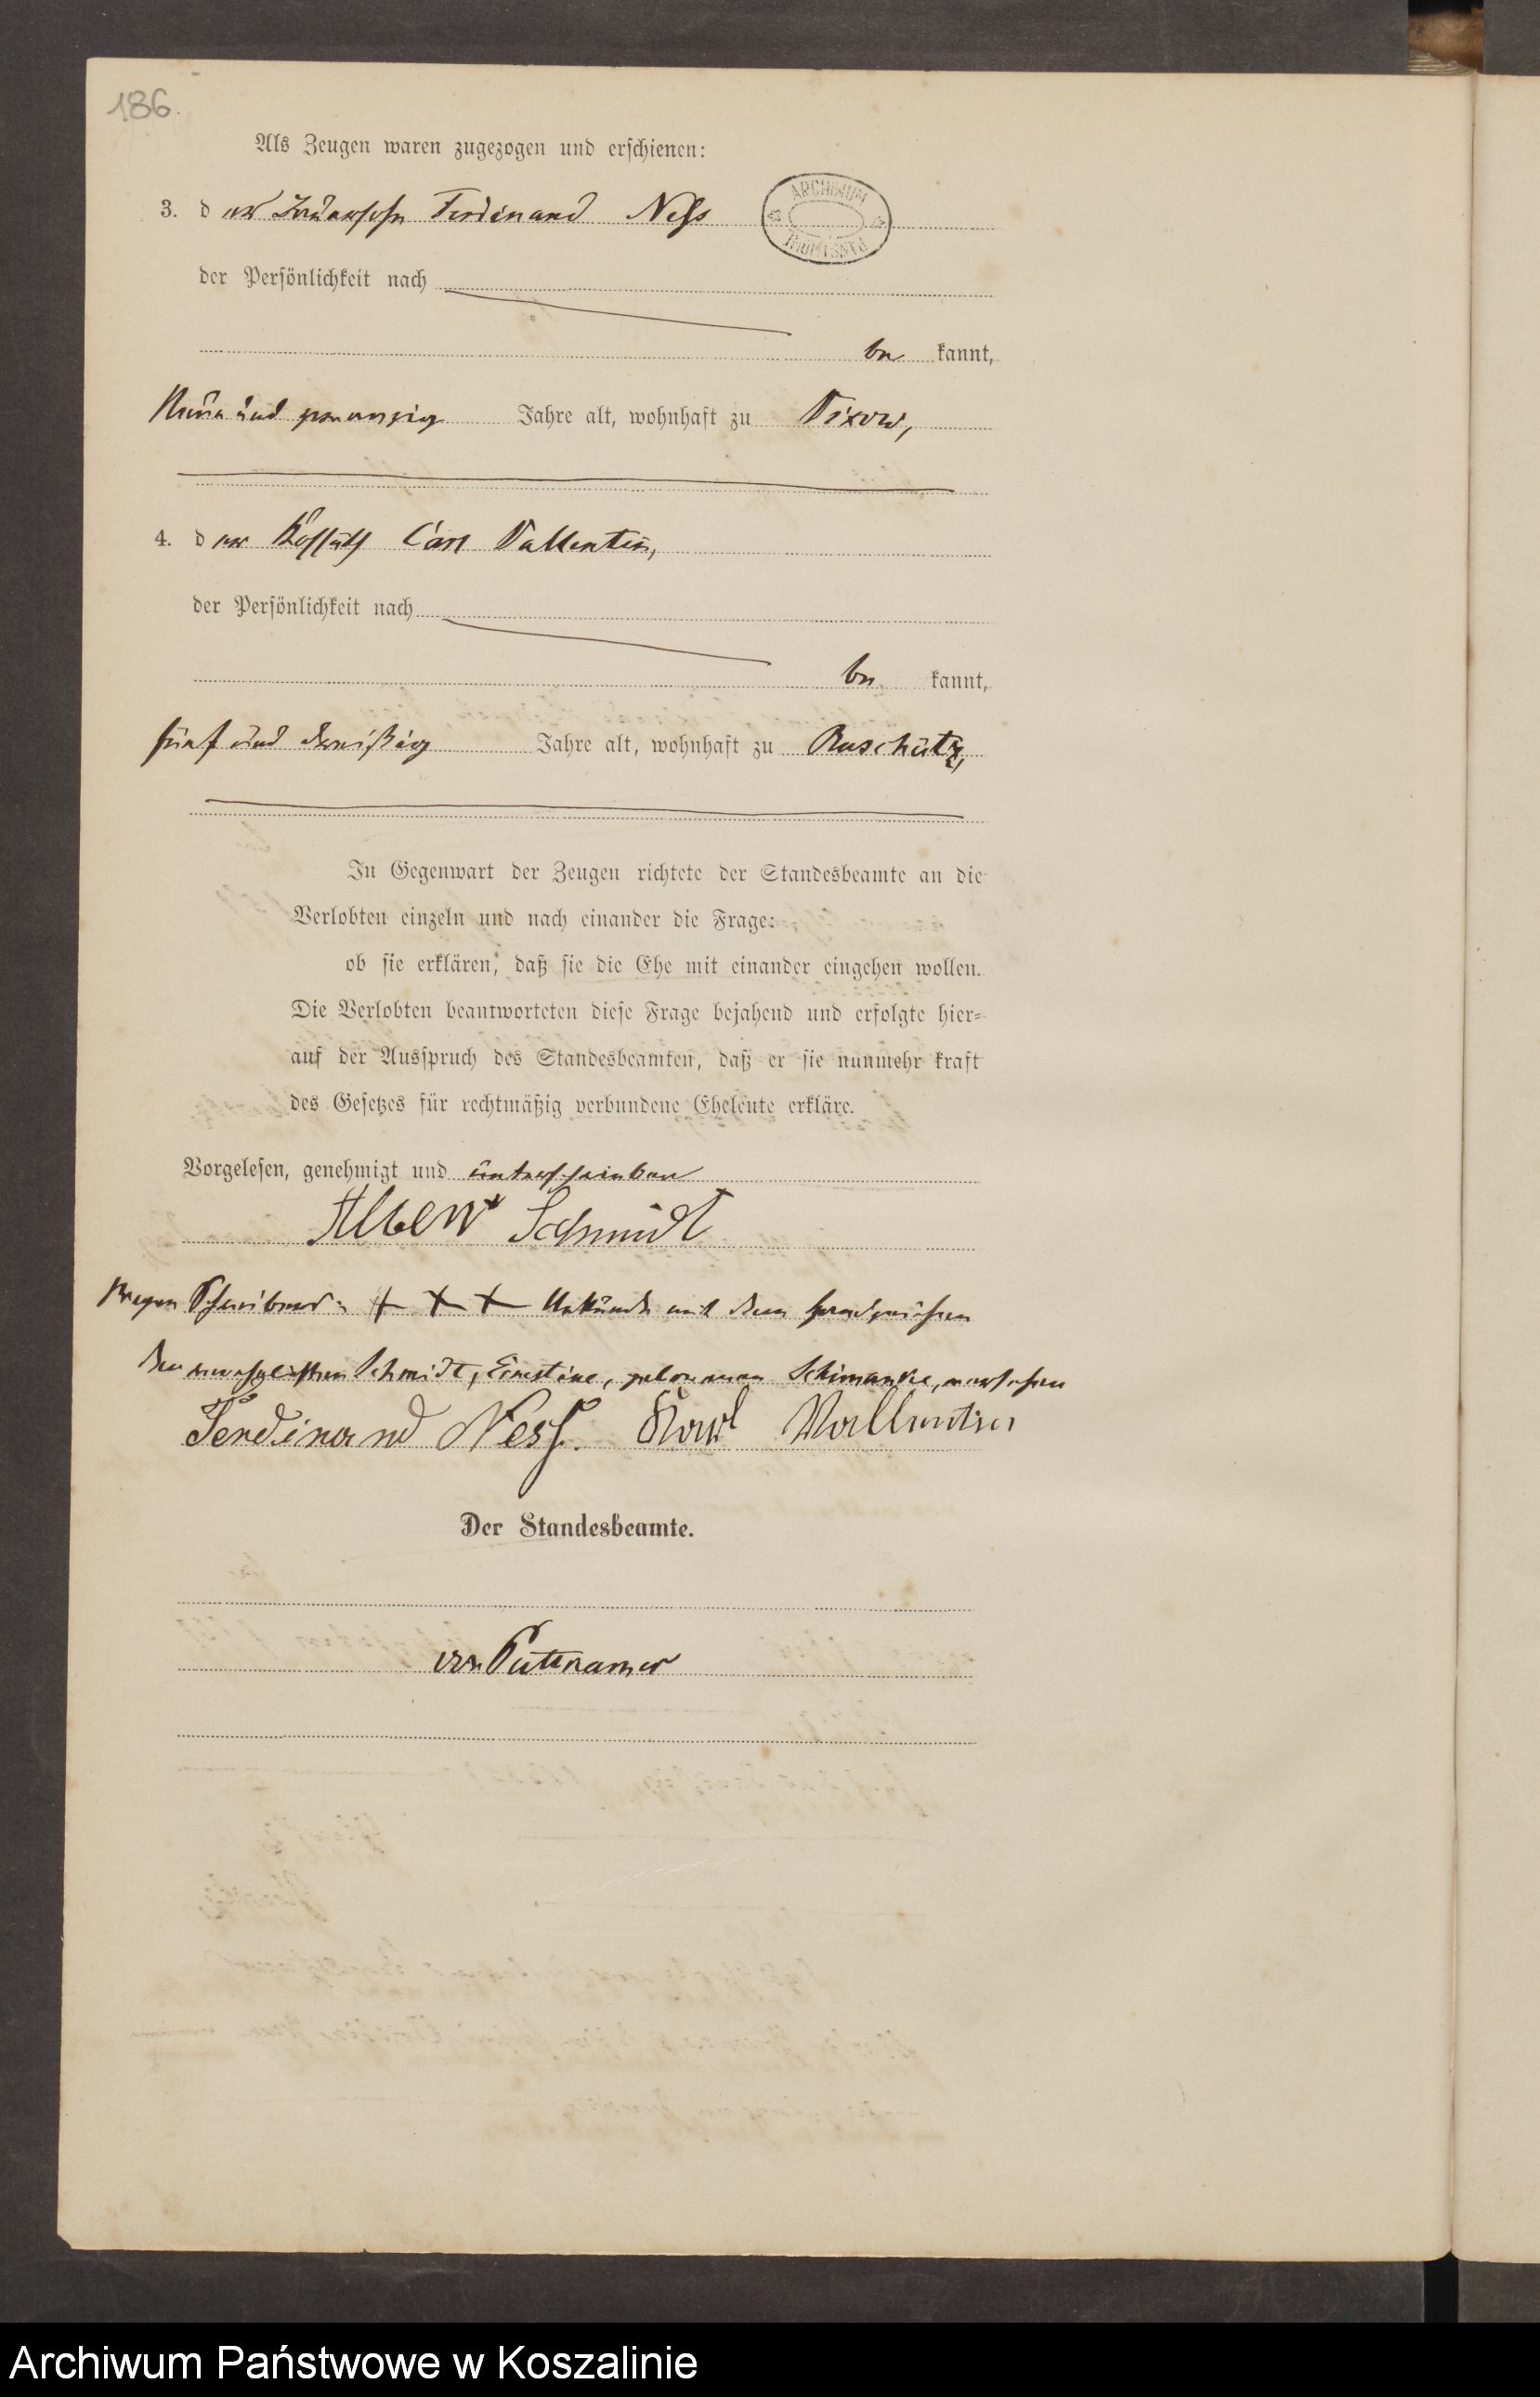 186.
Als Zeugen waren zugezogen und erschienen:
3. der Ferdinand Ness
ARCHIWUM PAŃSTWOWE
der Persönlichkeit nach
be kannt,
Neun und zwanzig Jahre alt, wohnhaft zu Vixow,
4. der Kossäth Carl Vallentin,
der Persönlichkeit nach
be kannt,
fünf und dreißig Jahre alt, wohnhaft zu Ruschütz,
In Gegenwart der Zeugen richtete der Standesbeamte an die
Verlobten einzeln und nach einander die Frage:
ob sie erklären, daß sie die Ehe mit einander eingehen wollen.
Die Verlobten beantworteten diese Frage bejahend und erfolgte hier-
auf der Ausspruch des Standesbeamten, daß er sie nunmehr kraft
des Gesetzes für rechtmäßig verbundene Eheleute erkläre.
Vorgelesen, genehmigt und unterschrieben
Albert Schmidt
Wegen + + + mit dem Handzeichen
der verehelichten Schmidt, Ernstine, geborenen Schimanke, versehen
Ferdinand Ness. Karl Vallentin
Der Standesbeamte.
von Puttkamer
Archiwum Państwowe w Koszalinie